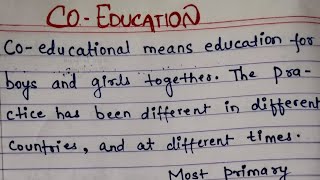 CO-EDUCATION
Co-educational means education for
boys and girls together. The pra-
ctice has been different in different
countries, and at different times.
Most primary